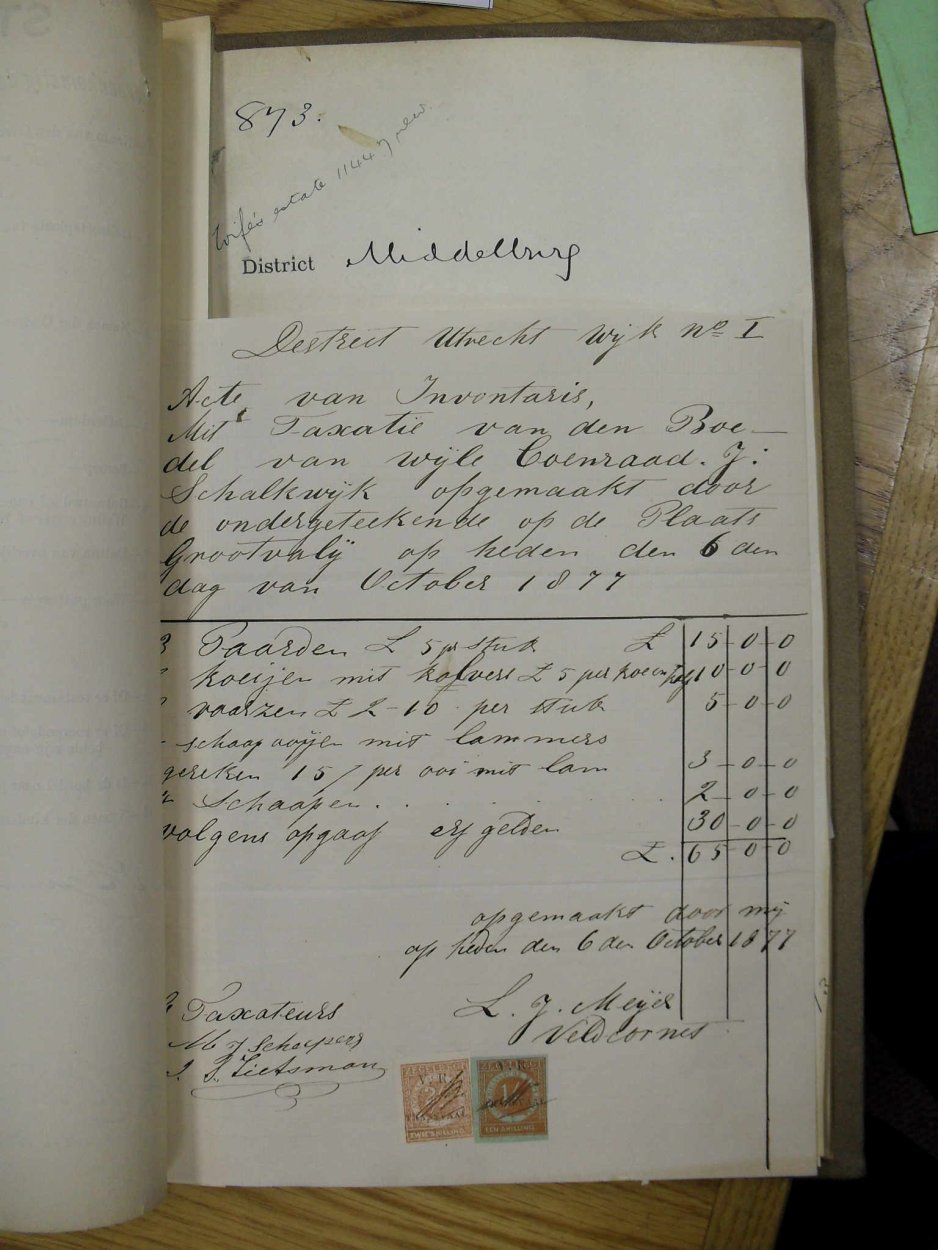 873.
Wife's estate 11447 new.
District Middelburg
Destrect Utrecht Wijk No I
Acte van Invontaris,
Mit Taxatie van den Boe-
del van wijle Coenraad. J:
Schalkwijk opgemaakt door
de ondergeteekende op de Plaats
Grootvalij op heden den 6 den
dag van October 1877
3 Paarden £ 5 pr stuk £ 15-0-0
koeijen mit kalvers £ 5 per koe en kalf 10-0-0
vaarzen £ 2-10 per stuk 5-0-0
schaap ooijen mit lammers
gereken 15/ per ooi mit lam 3-0-0
Schaapen . . . . . . 2-0-0
volgens opgaaf erf gelden 30-0-0
£. 65-0-0
opgemaakt door mij
op heden den 6 den October 1877
Taxateurs
L. J. Meijer
Veldcornet
M J Scheepers
P. Lietsman
ZEGELREGT
V.R.
TRANSVAAL
TWEE SHILLING
V.R.
EEN SHILLING